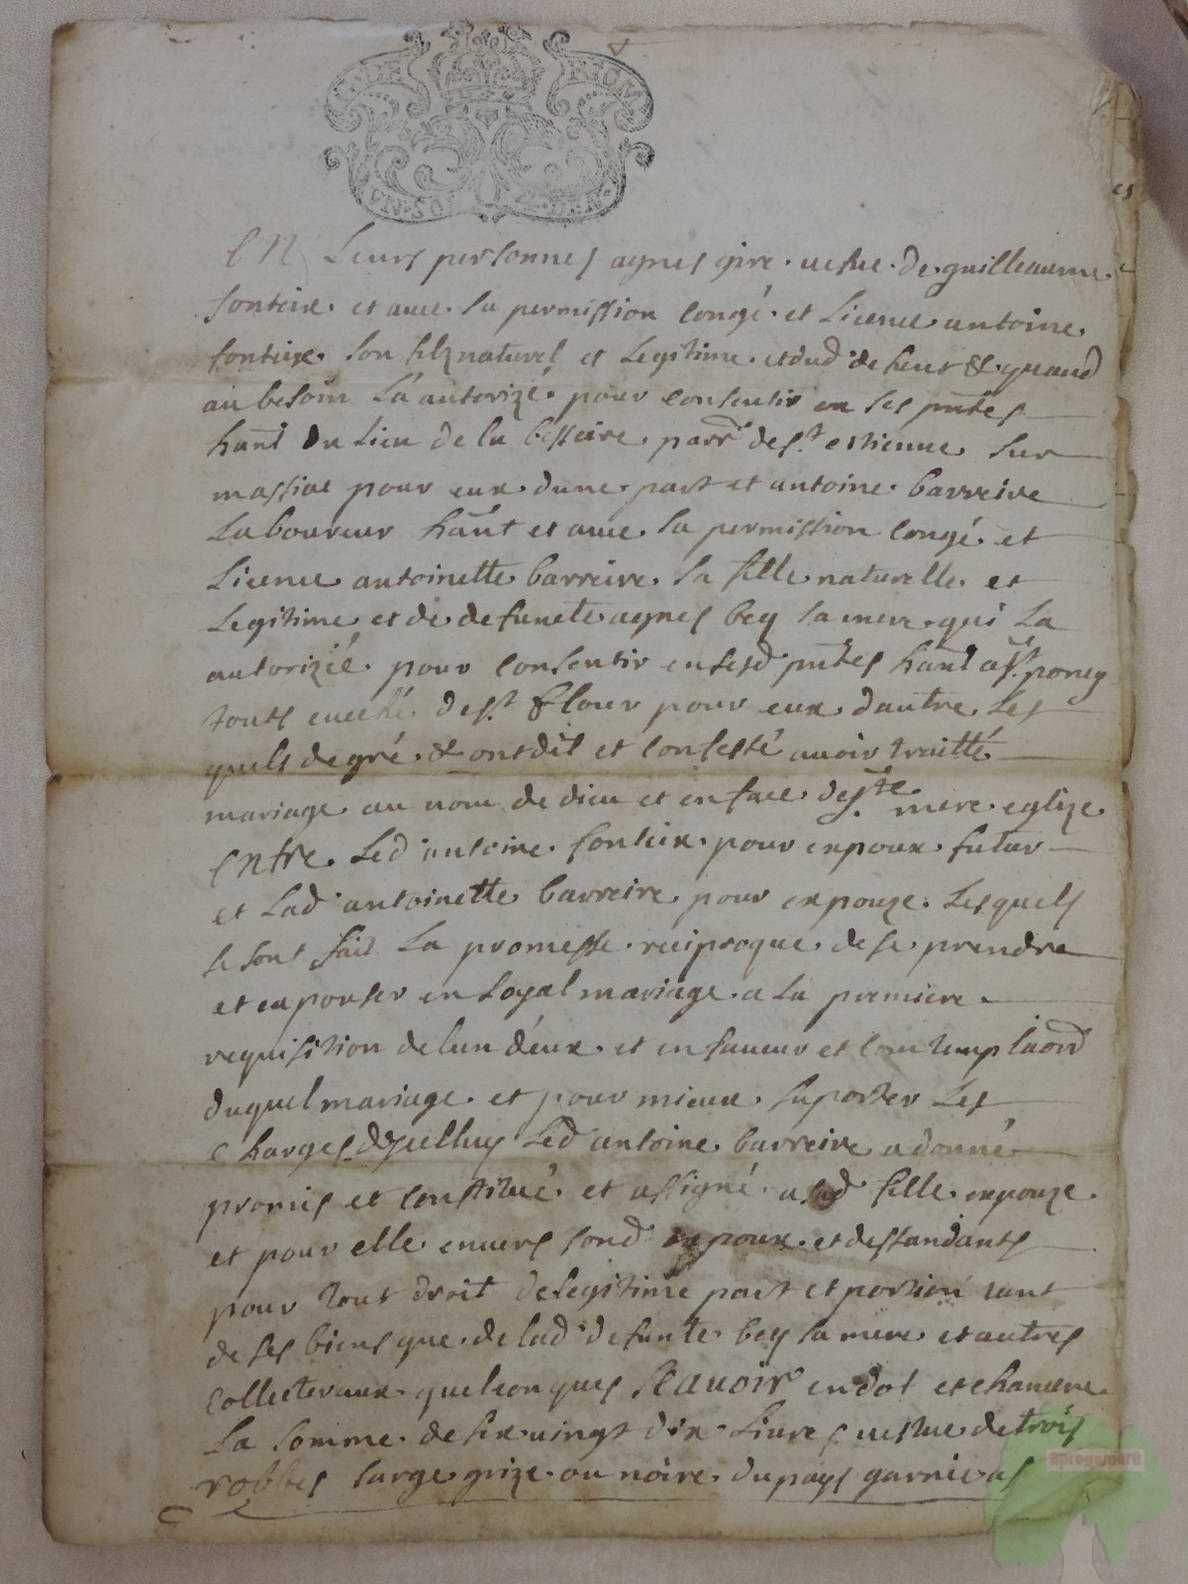 DE RIOM
UN SOL
EN Leurs personnes agnes gire vesve de guilleaume
fonteix et avec sa permission congé et Licence antoine
fonteix son filz naturel et Legitime et dud defunt & quand
au besoin La autorizé pour consentir en ses pntes
hant du Lieu de la bessaire parr de st estienne sur
massiac pour eux dune part et antoine barreire
Laboureur hant et avec sa permission congé et
Licence antoinette barreire sa fille naturelle et
Legitime et de defuncte agnes bey sa mere qui La
autorizéé pour consentir en sesd pntes hant a st poncy
touts eveché de st flour pour eux dautre Les
quels de gré & ont dit et confessé avoir traitté
mariage au nom de dieu et en face de ste mere eglize
Entre Led antoine fonteix pour expoux futur
et Lad antoinette barreire pour expouze Lesquels
se sont fait La promesse reciproque de se prendre
et expouser en Loyal mariage a La premiere
requisition de lun deux et en faveur et contemplaõn
duquel mariage et pour mieux suporter Les
Charges dyselluy Led antoine barreire a donné
promis et constitué et assigné a sad fille expouze
et pour elle envers sond expoux et dessandants
pour tout droit de legitime part et portion tant
de ses biens que de lad defunte bey sa mere et autres
collecteraux quelconques Scavoir en dot et chancere
La somme de six vingt dix Livres vestue de trois
robbes sarge grize ou noire du pays garnies
aprogemere